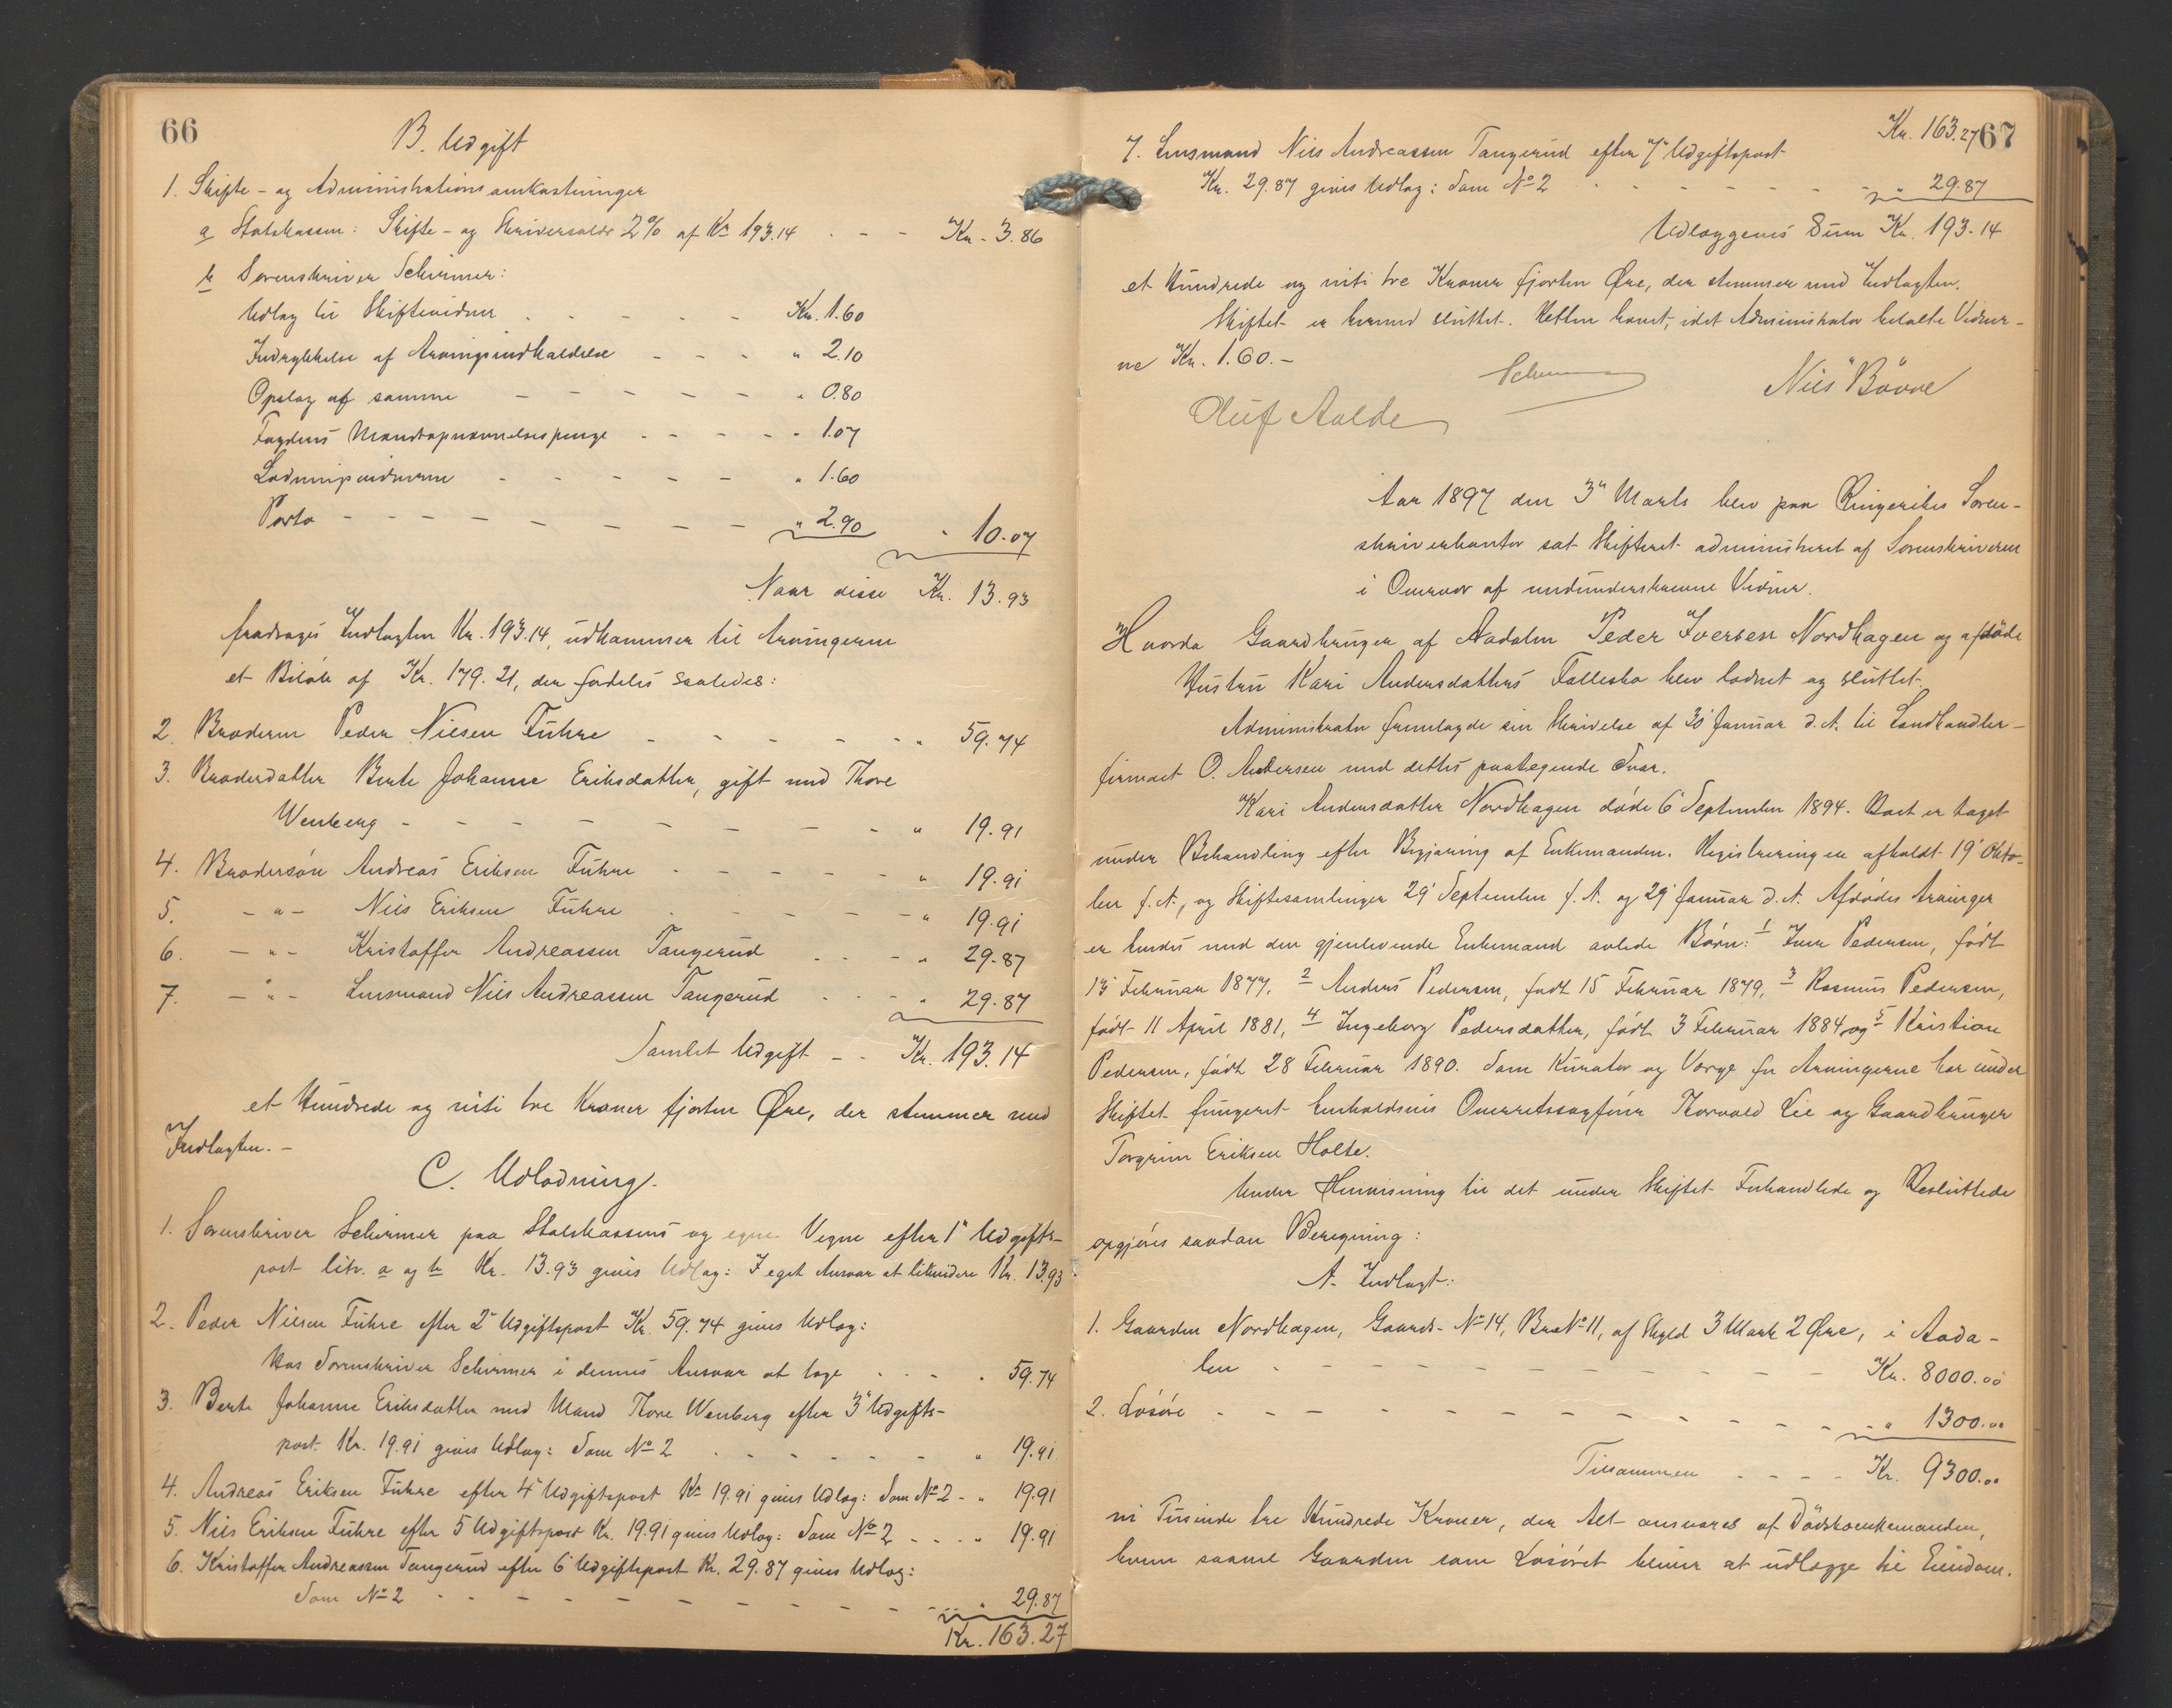 66
B. Udgift
1. Skifte- og Administrationsomkostninger
a Statskassen: Skifte- og Skriversalær 2% af Kr 193.14 - - - Kr. 3.86
b Sorenskriver Schirmer:
Udlæg til Skiftevidner - - - - - Kr. 1.60
Indrykkelse af Arvingsindkaldelse - - - - " 2.10
Opslag af samme - - - - - - " 0.80
Fogdens Mandsopnævnelsespenge - - - - - " 1.07
Lodningsvidnerne - - - - - " 1.60
Porto - - - - - - - - - " 2.90 " 10.07
Naar disse Kr. 13.93
fradrages Indtægten Kr. 193.14, udkommer til Arvingerne
et Beløb af Kr. 179.21, der fordeles saaledes:
2. Broderen Peder Nilsen Fuhre - - - - - - " 59.74
3. Broderdatter Berte Johanne Eriksdatter, gift med Thore
Wenberg - - - - - - - - - " 19.91
4. Brodersøn Andreas Eriksen Fuhre - - - - - - " 19.91
5. - " - Nils Eriksen Fuhre - - - - - - " 19.91
6. - " - Kristoffer Andreassen Tangerud - - - " 29.87
7. - " - Lensmand Nils Andreassen Tangerud - - - " 29.87
Samlet Udgift - - Kr. 193.14
et Hundrede og niti tre Kroner fjorten Øre, der stemmer med
Indtægten. -
C. Udlodning.
1. Sorenskriver Schirmer paa Statskassens og egne Vegne efter 1" Udgifts-
post litr. a og b Kr. 13.93 gives Udlæg: I eget Ansvar at likvidere Kr. 13.93
2. Peder Nilsen Fuhre efter 2" Udgiftspost Kr. 59.74 gives Udlæg:
Hos Sorenskriver Schirmer i dennes Ansvar at tage - - - - " 59.74
3. Berte Johanne Eriksdatter med Mand Thore Wenberg efter 3" Udgifts-
post Kr. 19.91 gives Udlæg: Som No 2 - - - - - - " 19.91
4. Andreas Eriksen Fuhre efter 4" Udgiftspost Kr 19.91 gives Udlæg: Som No 2 - " 19.91
5. Nils Eriksen Fuhre efter 5 Udgiftspost Kr. 19.91 gives Udlæg: Som No 2 - - - " 19.91
6. Kristoffer Andreassen Tangerud efter 6" Udgiftspost Kr. 29.87 gives Udlæg:
Som No 2 - - - - - - - - - - " 29.87
Kr. 163.27
Kr. 163.27 67
7. Lensmand Nils Andreassen Tangerud efter 7" Udgiftspost
Kr. 29.87 gives Udlæg: Som No 2 - - - - - - - " 29.87
Udlæggenes Sum Kr. 193.14
et Hundrede og niti tre Kroner fjorten Øre, der stemmer med Indtægten.
Skiftet er hermed sluttet. Retten hævet, idet Administrator betalte Vidner-
ne Kr. 1.60.-
Schirmer Nils Bövre
Oluf Aalde
Aar 1897 den 3" Marts blev paa Ringerikes Soren-
skriverkontor sat Skifteret administreret af Sorenskriveren
i Overvær af medunderskrevne Vidner.
Hvorda Gaardbruger af Aadalen Peder Iversen Nordhagen og afdöde
Hustru Kari Andersdatters Fællesbo blev lodnet og sluttet.
Administrator fremlagde sin Skrivelse af 30' Januar d. A. til Landhandler-
firmaet O. Andersen med dettes paategnede Svar.
Kari Andersdatter Nordhagen döde 6' September 1894. Boet er taget
under Behandling efter Begjæring af Enkemanden. Registreringen afholdt 19' Okto-
ber f. A., og Skiftesamlinger 29' September f. A. og 29' Januar d. A. Afdödes Arvinger
er hendes med den gjenlevende Enkemand avlede Børn: 1 Iver Pedersen, födt
13 Februar 1877, 2 Anders Pedersen, födt 15 Februar 1879, 3 Rasmus Pedersen,
födt 11 April 1881, 4 Ingeborg Pedersdatter, födt 3 Februar 1884 og 5 Kristian
Pedersen, födt 28 Februar 1890. Som Kurator og Værge for Arvingerne har under
Skiftet fungeret henholdsvis Overretssagförer Thorvald Lie og Gaardbruger
Torgrim Eriksen Holte.
Under Henvisning til det under Skiftet Forhandlede og Besluttede
opgjöres saadan Beregning:
A. Indtægt:
1. Gaarden Nordhagen, Gaards-No 14, Brs No 11, af Skyld 3 Mark 2 Øre, i Aada-
len - - - - - - - - - - - - Kr. 8000.00
2. Lösöre - - - - - - - - - - - - " 1300.00
Tilsammen - - - - Kr. 9300.00
ni Tusinde tre Hundrede Kroner, der Alt ansvares af Dödsboenkemanden,
hvem saavel Gaarden som Lösöret bliver at udlægge til Eiendom.